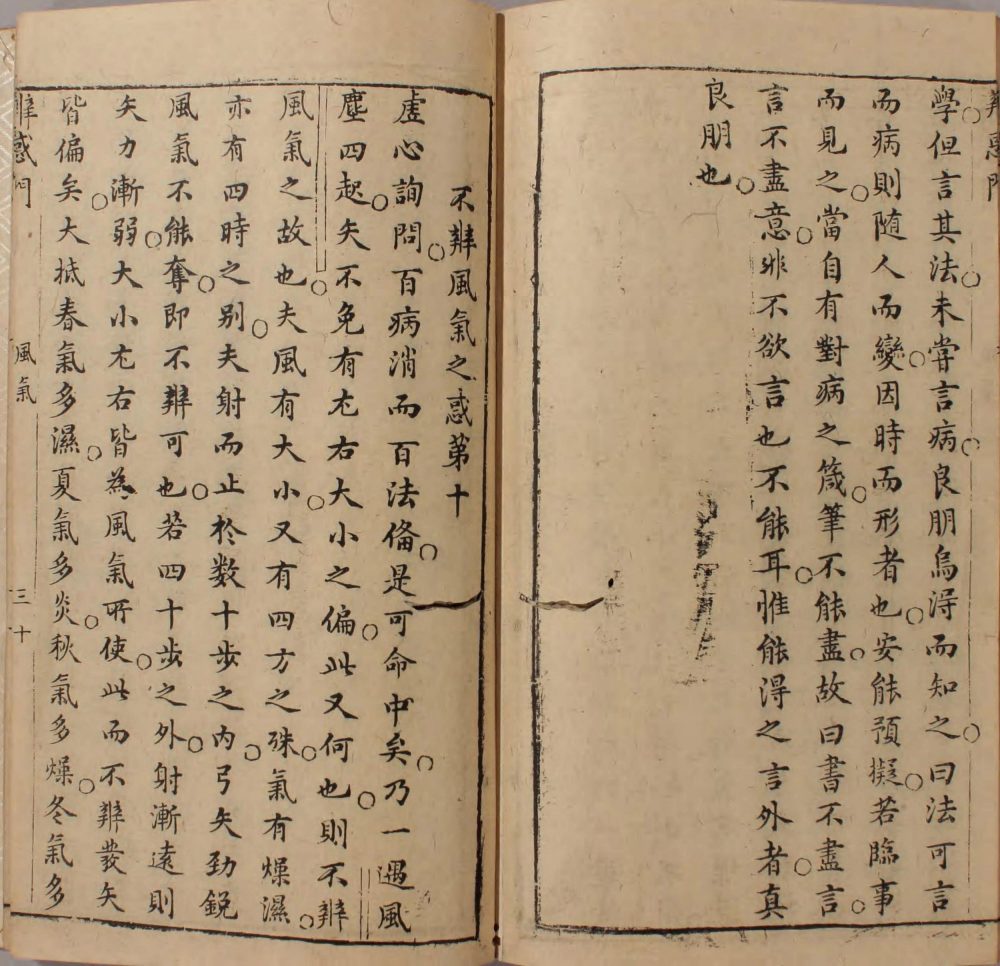 辨惑門
學但言其法未甞言病良朋烏淂而知之曰法可言
而病則随人而變因時而形者也安能預擬若臨事
而見之當自有對病之箴筆不能盡故曰書不盡言
言不盡意非不欲言也不能耳惟能淂之言外者真
良朋也
不辨風氣之惑第十
虛心詢問百病消而百法俻是可命中矣乃一遇風
塵四起矢不免有左右大小之偏此又何也則不辨
風氣之故也夫風有大小又有四方之殊氣有燥濕
亦有四時之别夫射而止於数十步之内弓矢勁銳
風氣不能奪即不辨可也若四十步之外射漸遠則
矢力漸弱大小左右皆為風氣所使此而不辨發矢
皆偏矣大抵春氣多濕夏氣多炎秋氣多燥冬氣多
辨惑門
風氣
三十